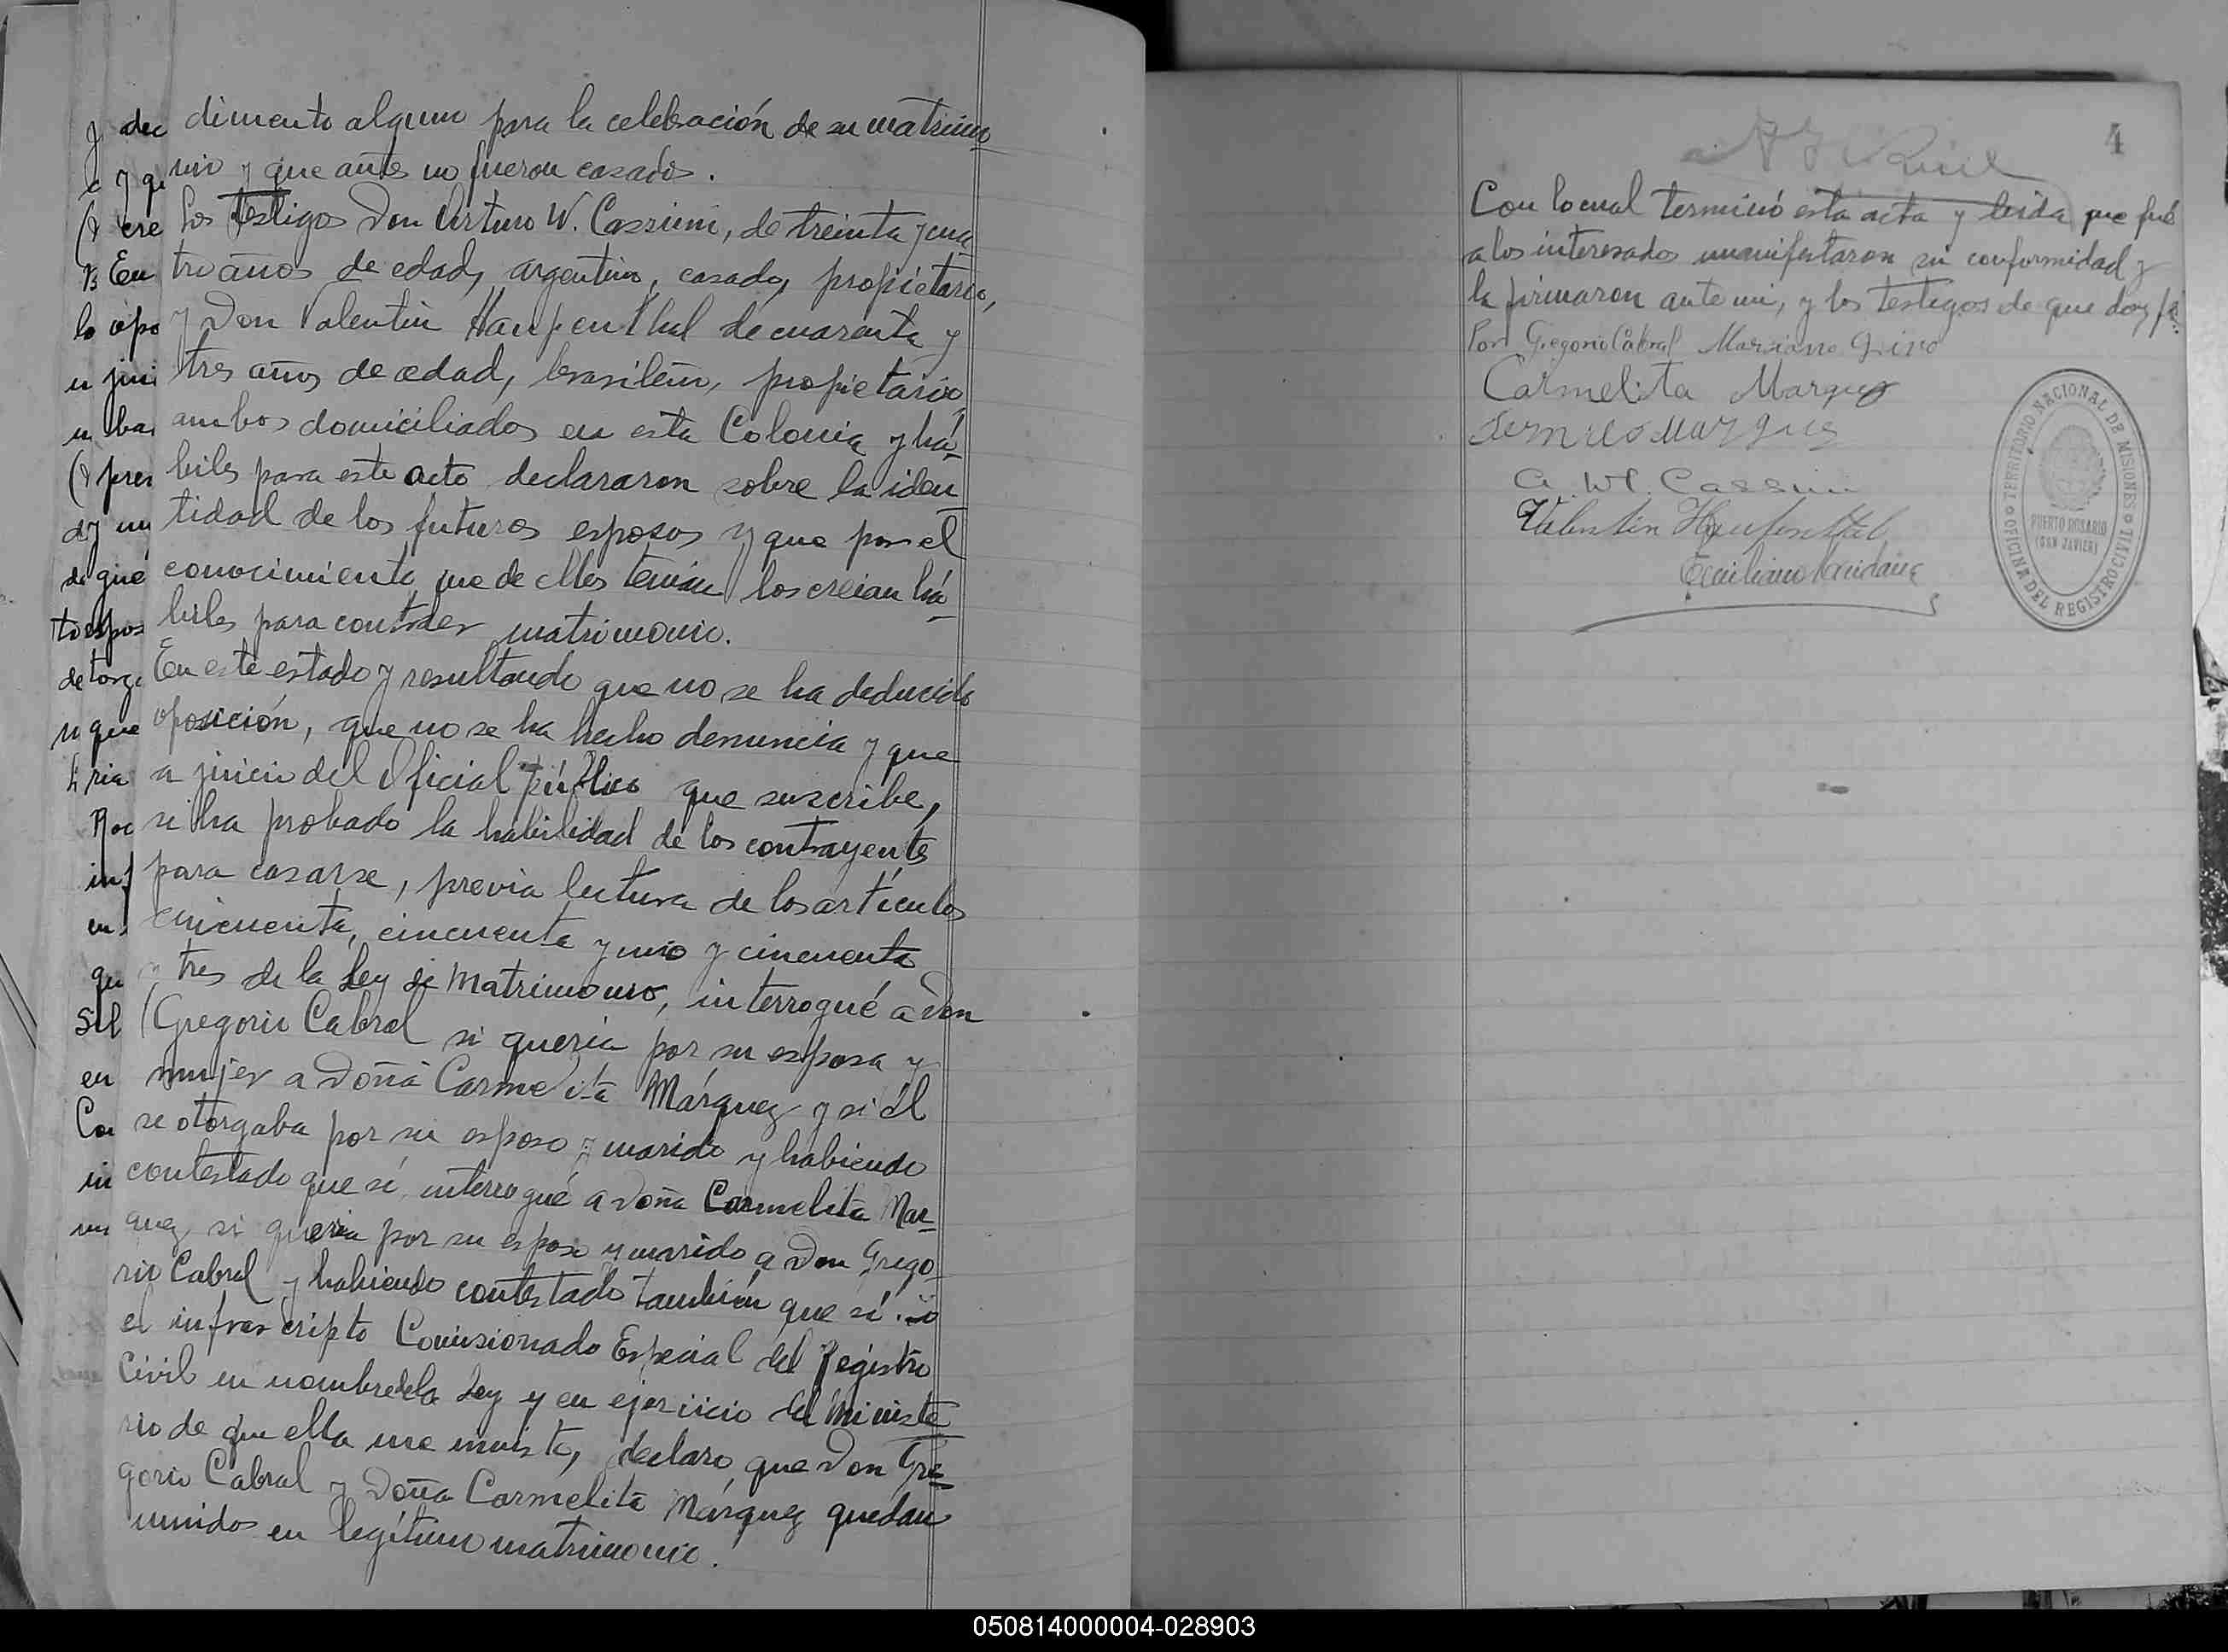 dimento alguno para la celebración de su matrimo
nio y que antes no fueron casados.
Los testigos Don Arturo W. Cassini, de treinta y cua
tro años de edad, argentino, casado, propietario,
y Don Valentin Haupenthal de cuarenta y
tres años de edad, brasileño, propietario,
ambos domiciliados en esta Colonia y há-
biles para este acto declararon sobre la iden
tidad de los futuros esposos y que por el
conocimiento que de ellos tenían los creian há-
biles para contraer matrimonio.
En este estado y resultando que no se ha deducido
oposición, que no se ha hecho denuncia y que
a juicio del Oficial público que suscribe,
se ha probado la habilidad de los contrayentes
para casarse, previa lectura de los artículos
cincuenta, cincuenta y uno y cincuenta
y tres de la Ley de Matrimonio, interrogué a Don
Gregorio Cabral si queria por su esposa y
mujer a Doña Carmelita Márquez y si él
se otorgaba por su esposo y marido y habiendo
contestado que sí, interrogué a Doña Carmelita Mar-
quez si queria por su esposo y marido a Don Grego-
rio Cabral y habiendo contestado también que sí
el infrascripto Comisionado Especial del Registro
Civil en nombre de la Ley y en ejercicio del Ministe
rio de que ella me inviste, declaro que Don Gre-
gorio Cabral y Doña Carmelita Márquez quedan
unidos en legítimo matrimonio.
4
Con lo cual terminó esta acta y leida que fué
a los interesados manifestaron su conformidad y
la firmaron ante mi, y los testigos de que doy fé.
Por Gregorio Cabral Mariano
Carmelita Marquez
A. W. Cassini
Valentin Haupenthal
OFICINA DEL REGISTRO CIVIL
TERRITORIO NACIONAL DE MISIONES
PUERTO ROSARIO
(SAN JAVIER)
050814000004-028903